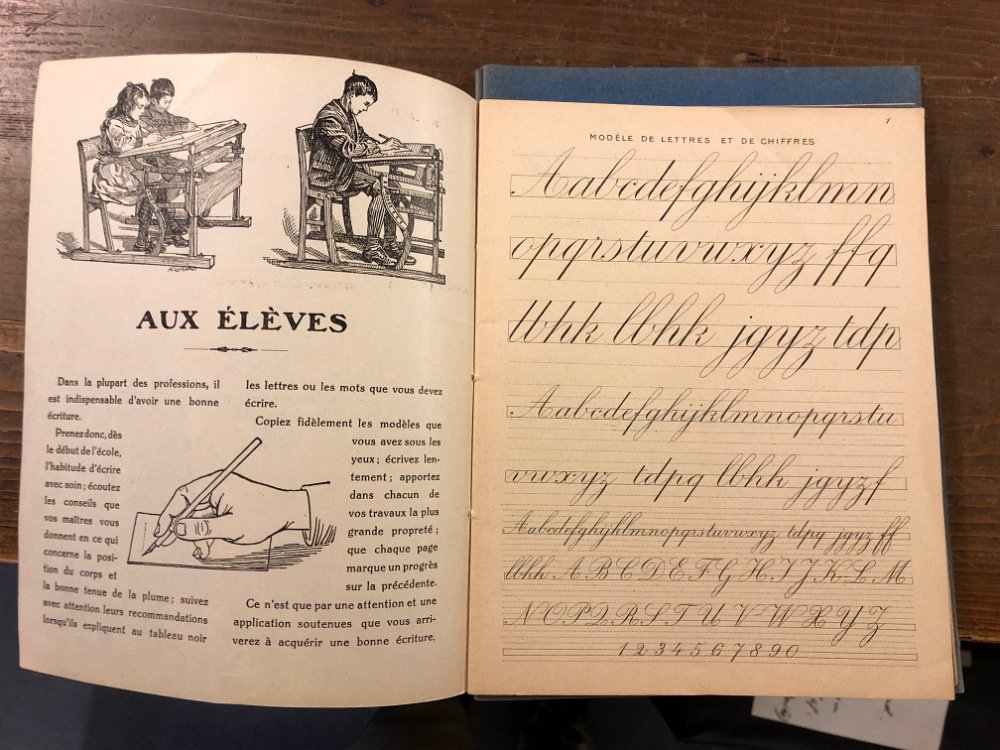 AUX ÉLÈVES
Dans la plupart des professions, il
est indispensable d'avoir une bonne
écriture.
Prenez donc, dès
le début de l'école,
l'habitude d'écrire
avec soin; écoutez
les conseils que
vos maîtres vous
donnent en ce qui
concerne la posi-
tion du corps et
la bonne tenue de la plume; suivez
avec attention leurs recommandations
lorsqu'ils expliquent au tableau noir
les lettres ou les mots que vous devez
écrire.
Copiez fidèlement les modèles que
vous avez sous les
yeux; écrivez len-
tement; apportez
dans chacun de
vos travaux la plus
grande propreté;
que chaque page
marque un progrès
sur la précédente.
Ce n'est que par une attention et une
application soutenues que vous arri-
verez à acquérir une bonne écriture.
1
MODÈLE DE LETTRES ET DE CHIFFRES
Aabcdefghijklmn
opqrstuvwxyz ffq
lbhk lbhk jgyz tdp
Aabcdefghijklmnopqrstu
vwxyz tdpq lbhk jgyzf
Aabcdefghijklmnopqrstuvwxyz tdpq jgyz ff
lbhk A B C D E F G H I J K L M
N O P Q R S T U V W X Y Z
1 2 3 4 5 6 7 8 9 0